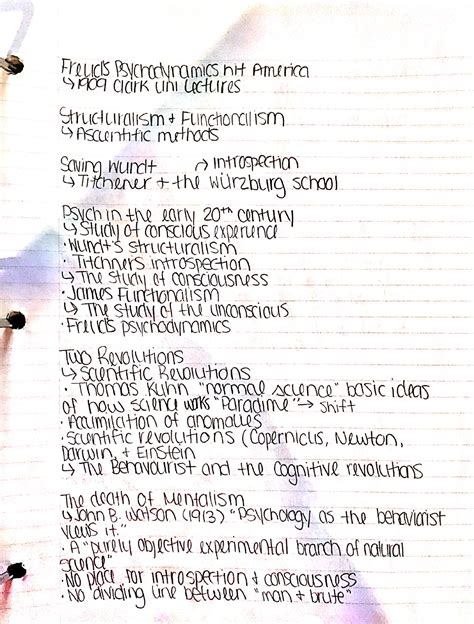 Freud's Psychodynamics hit America
↳ 1909 Clark Uni Lectures
Structuralism + Functionalism
↳ Ascientific methods
Saving Wundt ↗ introspection
↳ Titchener + the Würzburg school
Psych in the early 20th century
↳ Study of conscious experience
· Wundt's structuralism
· Titchners introspection
↳ The study of consciousness
· James Functionalism
↳ The study of the unconscious
· Freud's psychodynamics
Two Revolutions
↳ Scientific Revolutions
· Thomas Kuhn "normal science" basic ideas
of how science works "Paradime" → shift
· Accumilation of anomalies
· Scientific revolutions (Copernicus, Newton,
Darwin, + Einstein
↳ The Behaviourist and the cognitive revolutions
The death of Mentalism
↳ John B. Watson (1913) "Psychology as the behaviorist
views it."
· A "purely objective experimental branch of natural
science"
· No place for introspection + consciousness
· No dividing line between "man + brute"